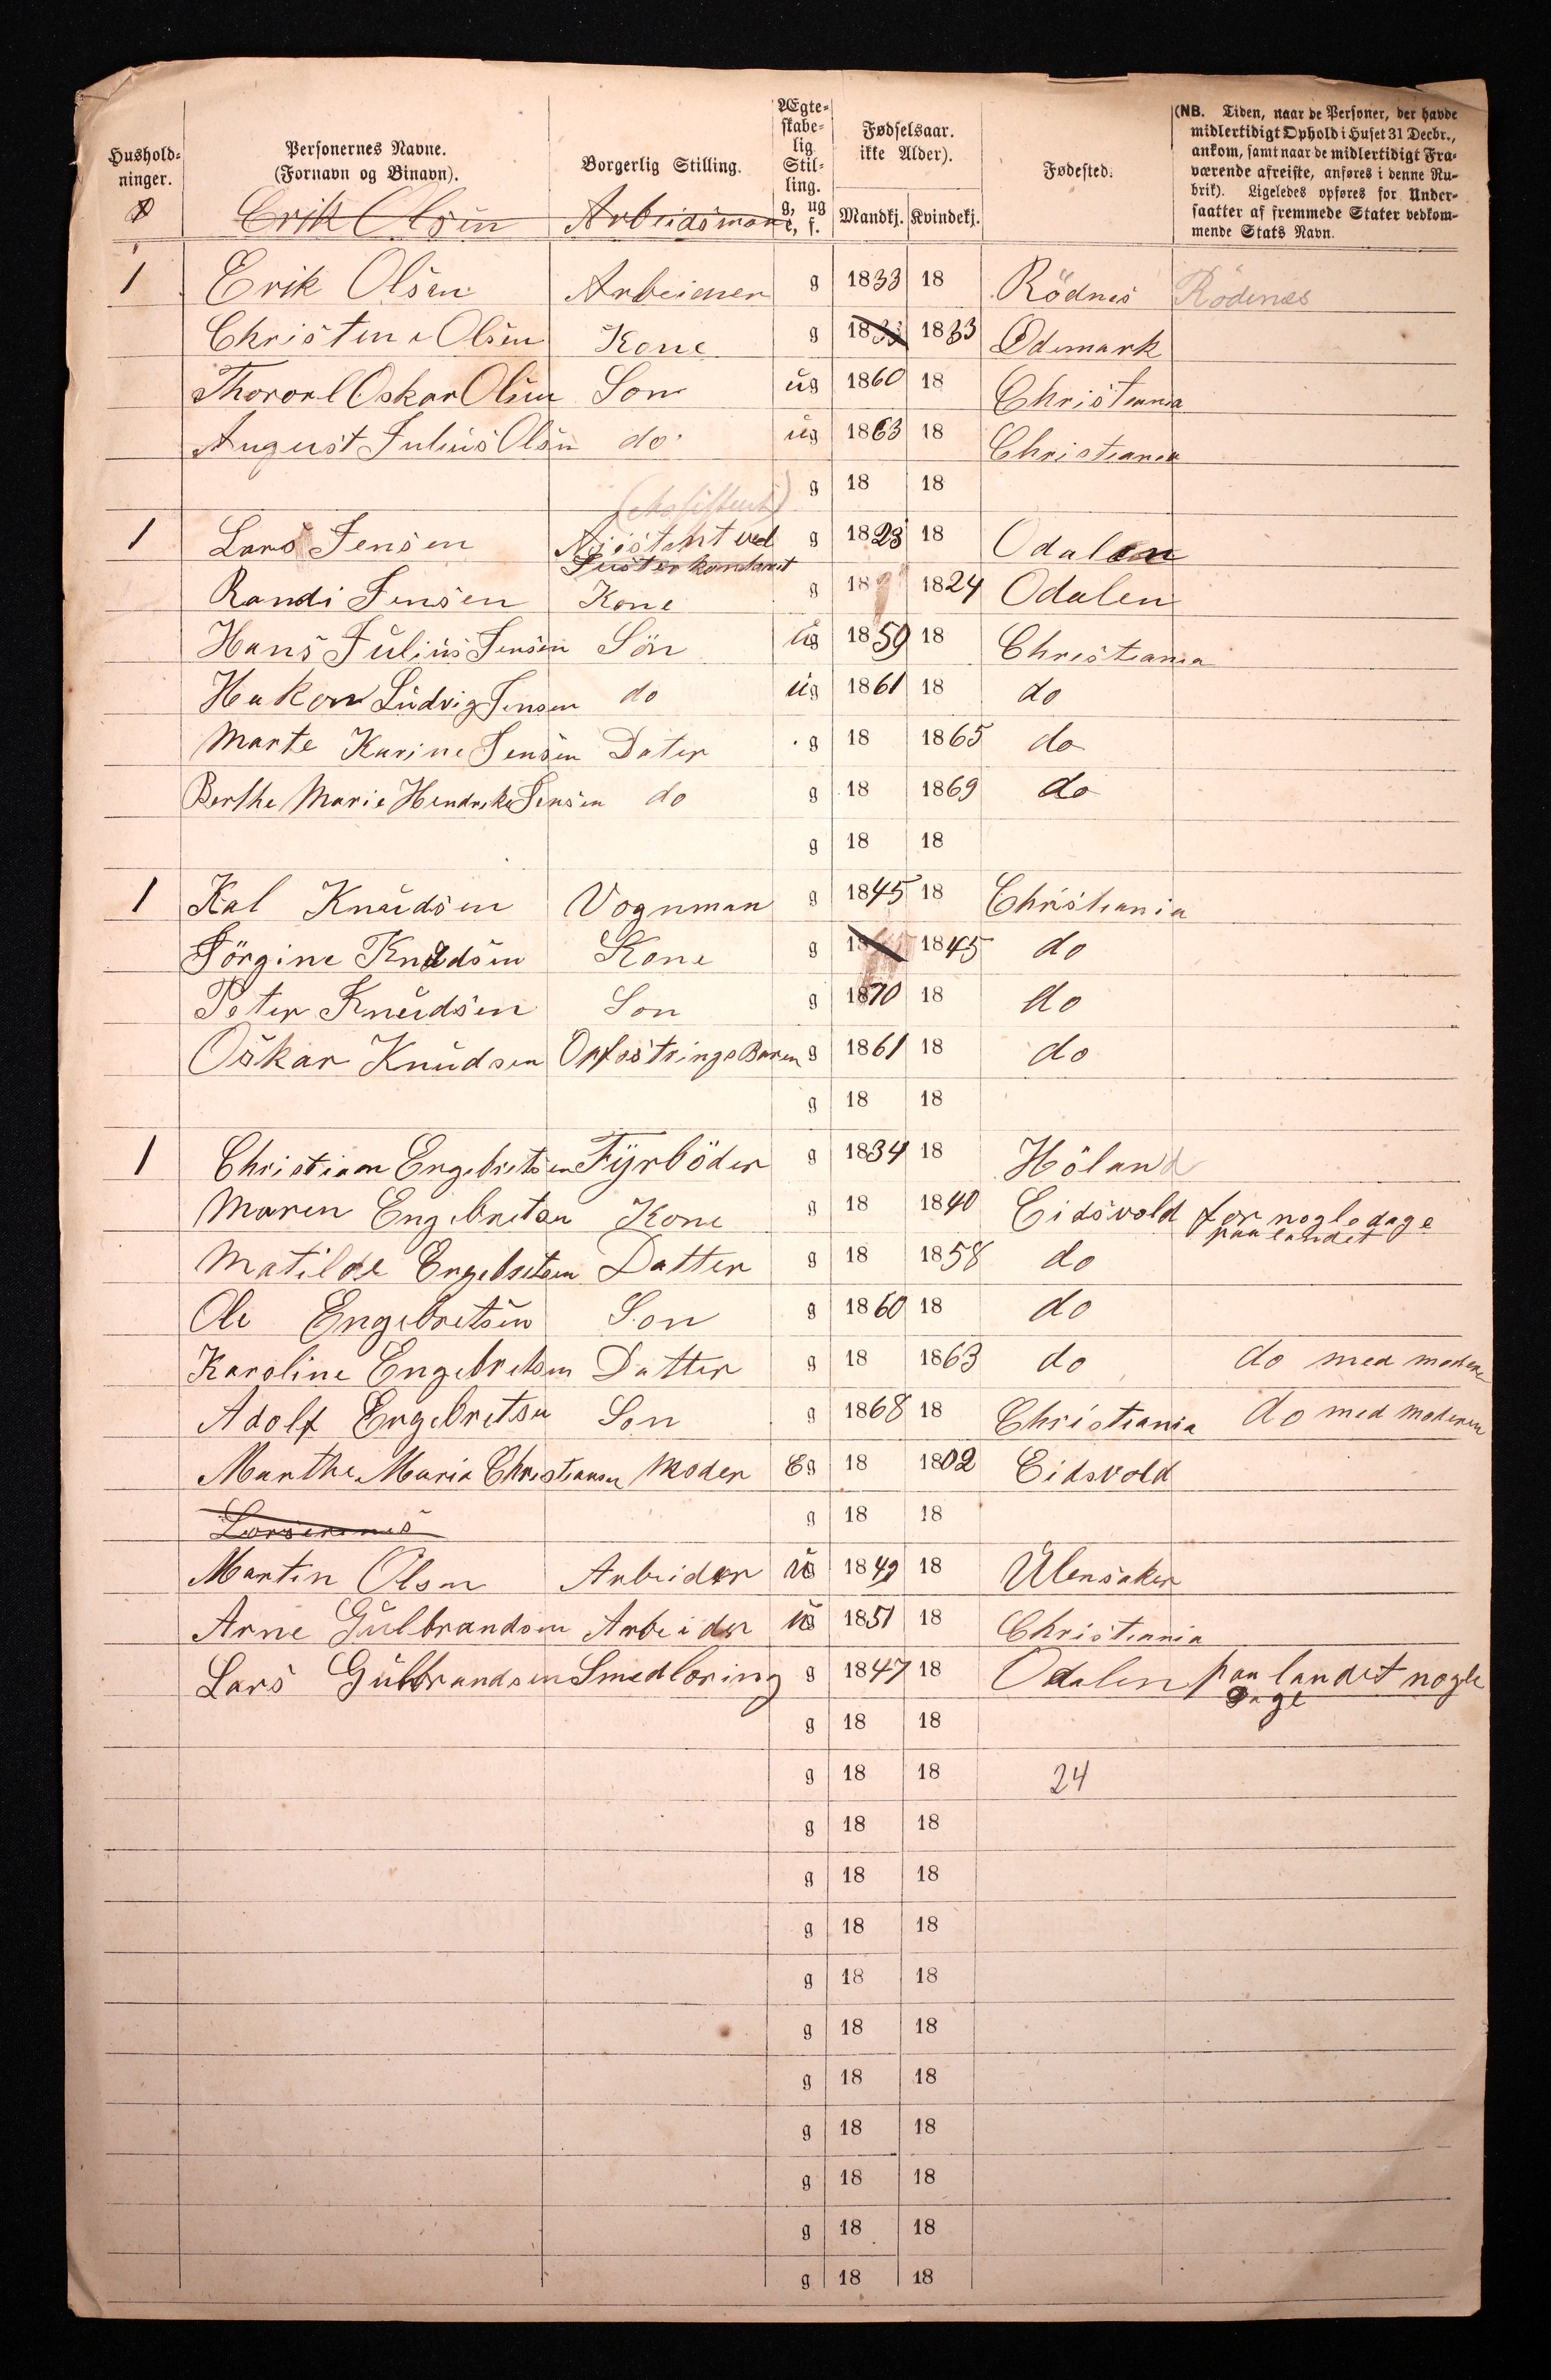 Hushold-
ninger.
Personernes Navne.
(Fornavn og Binavn).
Borgerlig Stilling.
Ægte-
skabe-
lig
Stil-
ling.
g, ug
e, f.
Fødselsaar.
ikke Alder).
Mandkj. Kvindekj.
Fødested.
(NB. Tiden, naar de Personer, der havde
midlertidigt Ophold i Huset 31 Decbr.,
ankom, samt naar de midlertidigt Fra-
værende afreiste, anføres i denne Ru-
brik). Ligeledes opføres for Under-
saatter af fremmede Stater vedkom-
mende Stats Navn.
Erik Olsen Arbeidsman
1 Erik Olsen Arbeidner g 1833 18 Rödnes Rödenes
Christine Olsen Kone g 1833 1833 Ödemark
Thorvarl Oskar Olsen Son ug 1860 18 Christiania
August Julius Olsen do ug 1863 18 Christiania
g 18 18
(Assistent)
1 Lars Jensen Asistent ved g 1823 18 Odalen
Justerkontoret
Randi Jensen Kone g 18 1824 Odalen
Hans Julius Jensen Sön ug 1859 18 Christiania
Hakon Ludvig Jensen do ug 1861 18 do
Marte Karine Jensen Dater g 18 1865 do
Berthe Marie Hendrike Jensen do g 18 1869 do
g 18 18
1 Kal Knudsen Vognman g 1845 18 Christiania
Jörgine Knudsen Kone g 18 1845 do
Peter Knudsen Son g 1870 18 do
Oskar Knudsen Opfostrings Baren g 1861 18 do
g 18 18
1 Christian Engebretsen Fyrböder g 1834 18 Höland
Maren Engebretsen Kone g 18 1840 Eidsvold for nogle dage
paa landet
Matilde Engebretsen Datter g 18 1858 do
Ole Engebretsen Son g 1860 18 do
Karoline Engebretsen Datter g 18 1863 do do med moderen
Adolf Engebretsen Son g 1868 18 Christiania do med moderen
Marthe Maria Christiansen Moder Eg 18 1802 Eidsvold
Losserenes g 18 18
Martin Olsen Arbeider ug 1849 18 Ulensaker
Arne Gulbrandsen Arbeider ug 1851 18 Christiania
Lars Gulbrandsen Smedloring g 1847 18 Odalen paa landet nogle
Dage
g 18 18
g 18 18 24
g 18 18
g 18 18
g 18 18
g 18 18
g 18 18
g 18 18
g 18 18
g 18 18
g 18 18
g 18 18